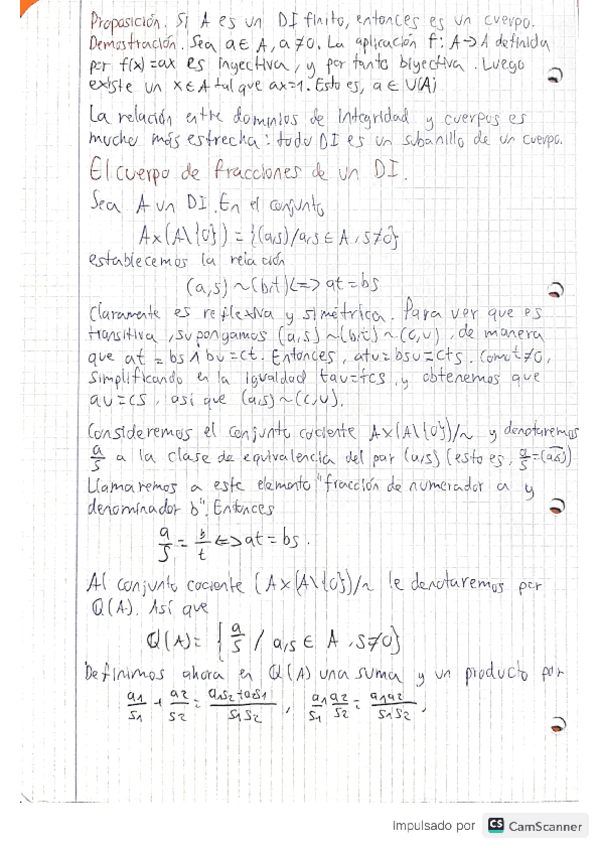 Proposición. Si A es un DI finito, entonces es un cuerpo.
Demostración. Sea a ∈ A, a ≠ 0. La aplicación f: A → A definida
por f(x) = ax es inyectiva, y por tanto biyectiva. Luego
existe un x ∈ A tal que ax = 1. Esto es, a ∈ U(A)
La relación entre dominios de integridad y cuerpos es
mucho más estrecha: todo DI es un subanillo de un cuerpo.
El cuerpo de fracciones de un DI.
Sea A un DI. En el conjunto
A x (A \ {0}) = {(a,s) / a,s ∈ A, s ≠ 0}
establecemos la relación
(a,s) ~ (b,t) <=> at = bs
Claramente es reflexiva y simétrica. Para ver que es
transitiva, supongamos (a,s) ~ (b,t) ~ (c,u), de manera
que at = bs ∧ bu = ct. Entonces, atu = bsu = cts. Como t ≠ 0,
simplificando en la igualdad tau = tcs, y obtenemos que
au = cs, así que (a,s) ~ (c,u).
Consideremos el conjunto cociente A x (A \ {0}) / ~ y denotaremos
a/s a la clase de equivalencia del par (a,s) (esto es, a/s = (a,s))
Llamaremos a este elemento "fracción de numerador a y
denominador b". Entonces
a/s = b/t <=> at = bs.
Al conjunto cociente (A x (A \ {0}) / ~ le denotaremos por
Q(A). Así que
Q(A) = { a/s / a,s ∈ A, s ≠ 0}
Definimos ahora en Q(A) una suma y un producto por
a1/s1 + a2/s2 = a1s2 + a2s1/s1s2, a1/s1 a2/s2 = a1a2/s1s2,
Impulsado por CS CamScanner